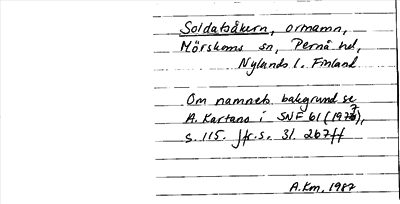 Soldatsåkern, ormamn,
Mörskoms sn, Pernå hd,
Nylands l. Finland
Om namnets bakgrund se
A. Kartano i SNF 61 (1973),
s. 115. Jfr. s. 31. 267 ff
A.Km, 1987